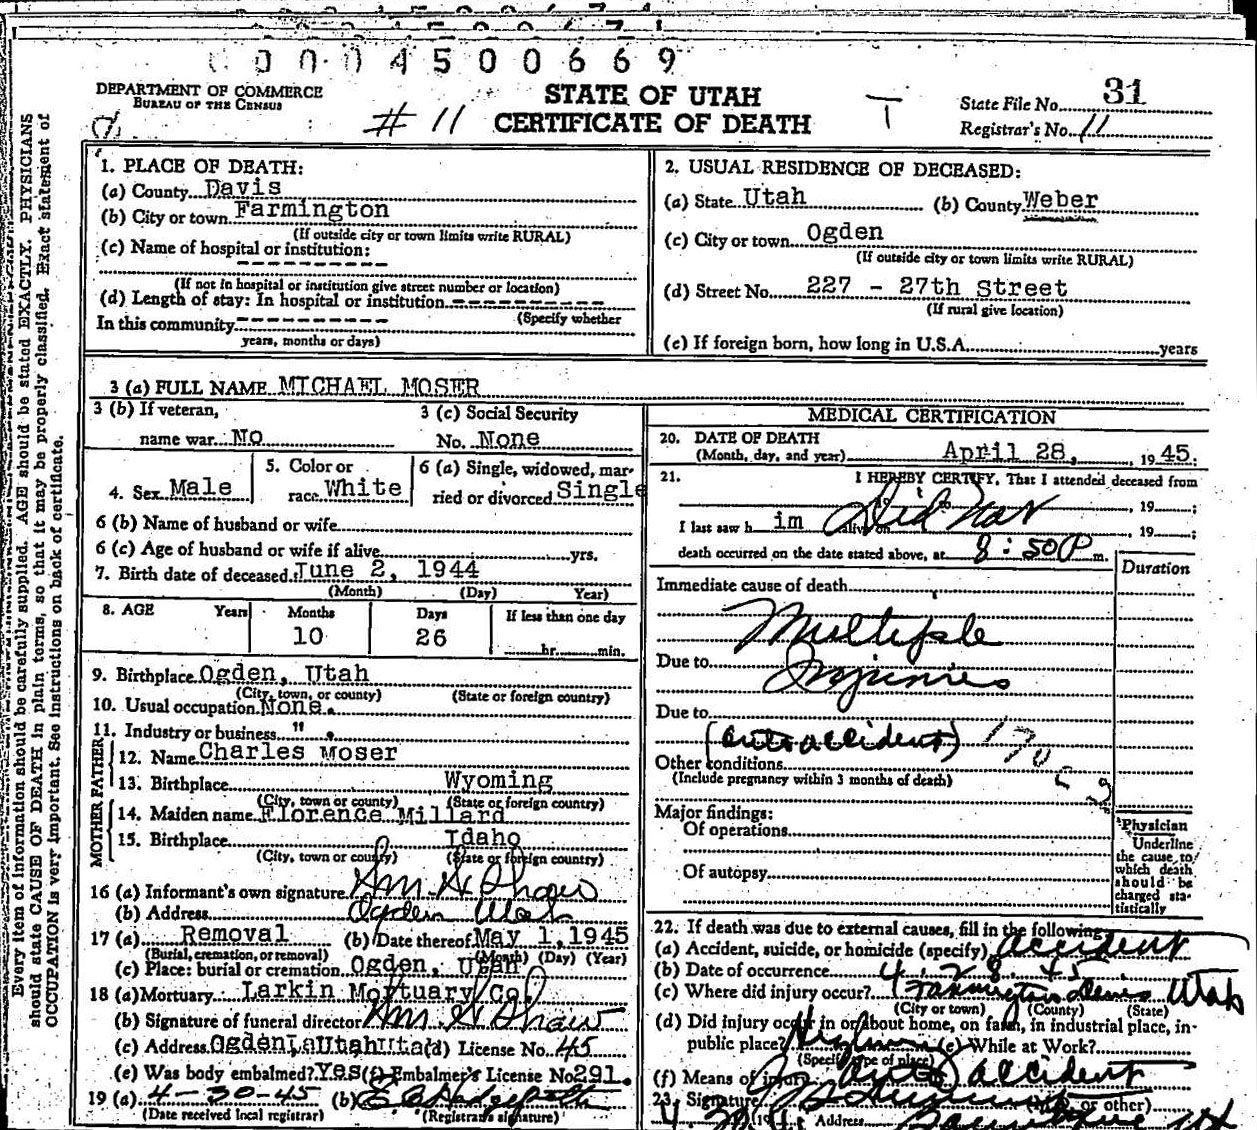 0 0 0 4 5 0 0 6 6 9
DEPARTMENT OF COMMERCE
BUREAU OF THE CENSUS
STATE OF UTAH
CERTIFICATE OF DEATH
# 11
T
State File No. 31
Registrar's No. 11
Every item of information should be carefully supplied. AGE should be stated EXACTLY. PHYSICIANS
should state CAUSE OF DEATH in plain terms, so that it may be properly classified. Exact statement of
OCCUPATION is very important. See instructions on back of certificate.
1. PLACE OF DEATH:
(a) County Davis
(b) City or town Farmington
(If outside city or town limits write RURAL)
(c) Name of hospital or institution:
----------
(If not in hospital or institution give street number or location)
(d) Length of stay: In hospital or institution ----------
(Specify whether
In this community ----------
years, months or days)
2. USUAL RESIDENCE OF DECEASED:
(a) State Utah (b) County Weber
(c) City or town Ogden
(If outside city or town limits write RURAL)
(d) Street No. 227 - 27th Street
(If rural give location)
(e) If foreign born, how long in U.S.A. years
3 (a) FULL NAME MICHAEL MOSER
3 (b) If veteran,
name war No
3 (c) Social Security
No. None
4. Sex Male
5. Color or
race White
6 (a) Single, widowed, mar-
ried or divorced Single
6 (b) Name of husband or wife
6 (c) Age of husband or wife if alive yrs.
7. Birth date of deceased June 2, 1944
(Month) (Day) Year)
8. AGE Years Months Days If less than one day
10 26 hr. min.
9. Birthplace Ogden, Utah
(City, town, or county) (State or foreign country)
10. Usual occupation None.
11. Industry or business " .
FATHER
12. Name Charles Moser
13. Birthplace Wyoming
(City, town or county) (State or foreign country)
MOTHER
14. Maiden name Florence Millard
15. Birthplace Idaho
(City, town or county) (State or foreign country)
16 (a) Informant's own signature Wm. H Shaw
(b) Address Ogden Utah
17 (a) Removal (b) Date thereof May 1, 1945
(Burial, cremation, or removal) (Month) (Day) (Year)
(c) Place: burial or cremation Ogden, Utah
18 (a) Mortuary Larkin Mortuary Co.
(b) Signature of funeral director Wm. H Shaw
(c) Address Ogden, Utah (d) License No. 45
(e) Was body embalmed? Yes (f) Embalmer's License No. 291.
19 (a) 4-30-45 (b)
(Date received local registrar) (Registrar's signature)
MEDICAL CERTIFICATION
20. DATE OF DEATH
(Month, day, and year) April 28, 1945.
21. I HEREBY CERTIFY, That I attended deceased from
, 19 ;
I last saw h im alive on Did Not , 19 ;
death occurred on the date stated above, at 8:50 P m.
Duration
Immediate cause of death
Multiple
Due to Injuries
Due to
(auto accident) 170
Other conditions
(Include pregnancy within 3 months of death)
Major findings:
Of operations
Of autopsy
Physician
Underline
the cause to
which death
should be
charged sta-
tistically
22. If death was due to external causes, fill in the following:
(a) Accident, suicide, or homicide (specify) accident
(b) Date of occurrence 4. 28. 45
(c) Where did injury occur? Farmington Davis Utah
(City or town) (County) (State)
(d) Did injury occur in or about home, on farm, in industrial place, in
public place? Highway (e) While at Work?
(Specify type of place)
(f) Means of injury auto accident
23. Signature (M.D. or other)
Address